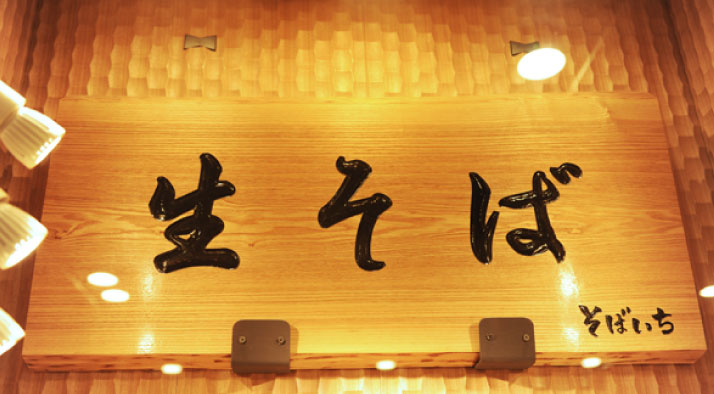 生そば
そばいち